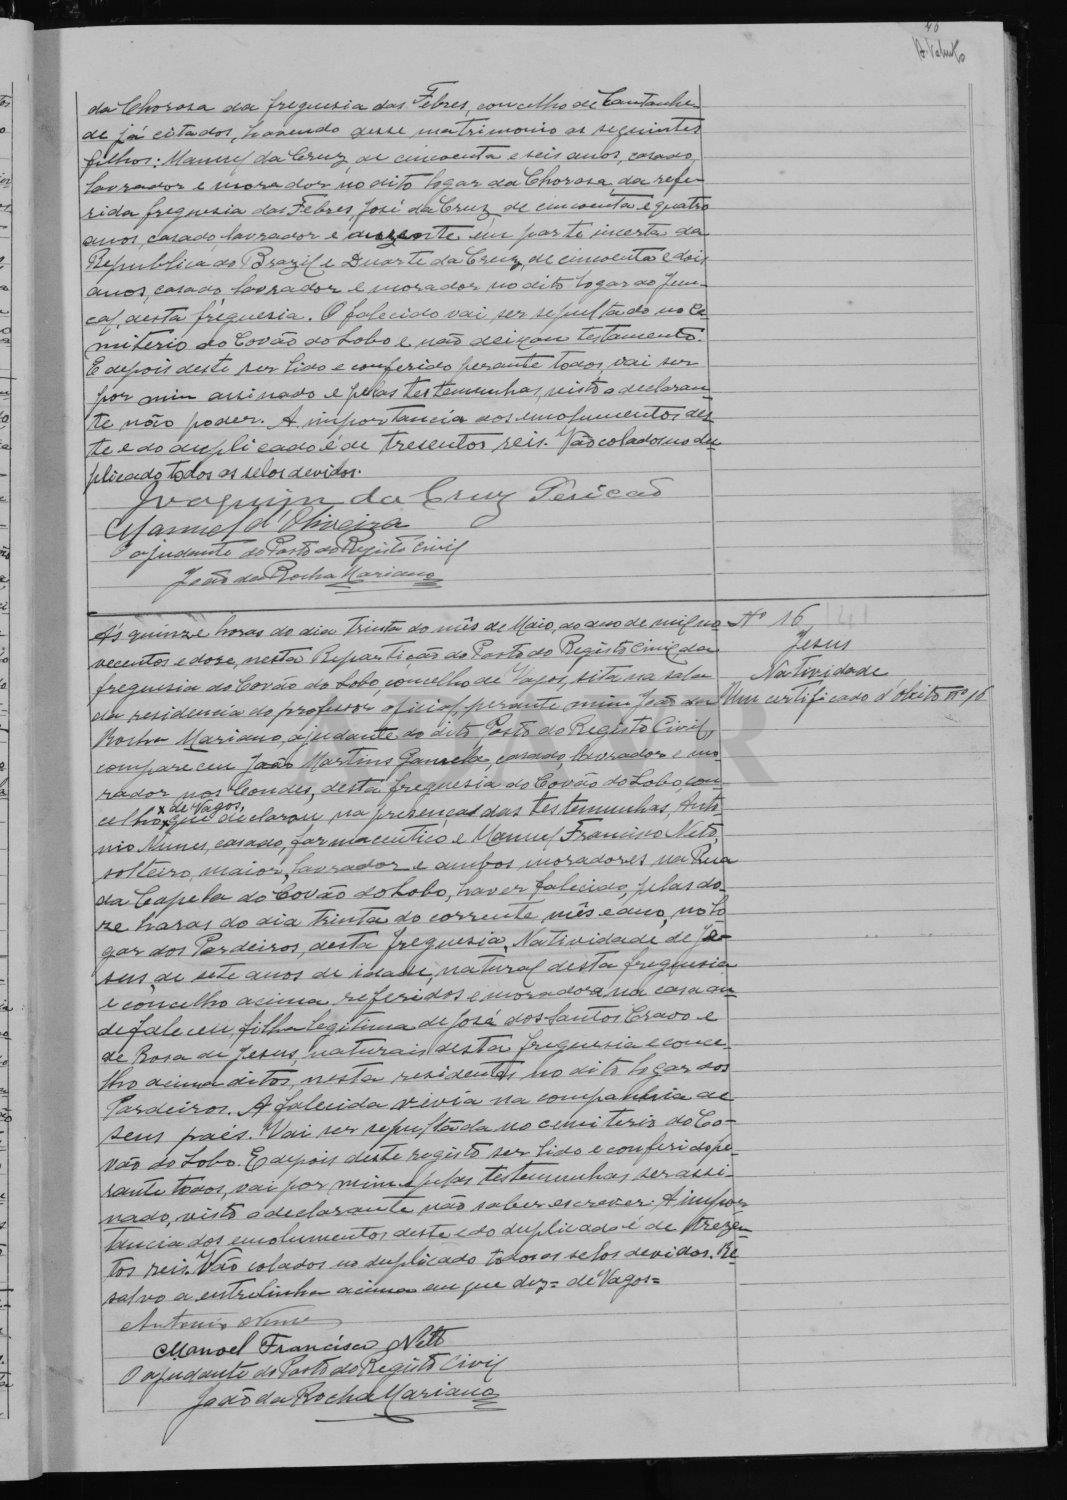 46
da Chorosa da freguesia das Febres, concelho de Cantanhe-
de já citados, havendo desse matrimonio os seguintes
filhos: Manuel da Cruz, de cincoenta e seis anos, casado,
lavrador e morador no dito logar da Chorosa, da refe-
rida freguesia das Febres, José da Cruz, de cincoenta e quatro
anos, casado, lavrador e auzente em parte incerta da
Republica do Brazil e Duarte da Cruz, de cincoenta e dois
anos, casado, lavrador e morador no dito logar do Jun-
cal, desta freguesia. O falecido vai ser sepultado no ce
miterio do Covão do Lobo e não deixou testamento.
E depois deste ser lido e conferido perante todos, vai ser
por mim assinado e pelas testemunhas, visto o declaran-
te não poder. A importancia dos emolumentos des
te e do duplicado é de tresentos reis. Vão colados no du-
plicado todos os selos devidos.
Joaquim da Cruz Pericão
Manuel d'Oliveira
O ajudante do Posto do Registo Civil
João da Rocha Mariano
Nº 16
Jesus
Natividade
Um certificado d'obito nº 16
Ás quinze horas do dia trinta do mês de Maio, do ano de mil no-
vecentos e doze, nesta Repartição do Posto do Registo Civil da
freguesia do Covão do Lobo, concelho de Vagos, sita na sala
da residencia do professor oficial, perante mim João da
Rocha Mariano, ajudante do dito Posto do Registo Civil,
compareceu João Martins, casado, lavrador e mo-
rador nos Condes, desta freguesia do Covão do Lobo, con-
x de Vagos,
celho x que declarou, na presença das testemunhas, Anto-
nio Nunes, casado, farmaceutico e Manuel Francisco Neto,
solteiro, maior, lavrador e ambos moradores na Rua
da Capela do Covão do Lobo, haver falecido, pelas do-
ze horas do dia trinta do corrente mês e ano, no lo
gar dos Pardeiros, desta freguesia, Natividade de Je-
sus, de sete anos de idade, natural desta freguesia
e concelho acima referidos e moradora na casa on-
de faleceu, filha legitima de José dos Santos Cravo e
de Rosa de Jesus, naturais desta freguesia e conce-
lho acima ditos, nesta residentes no dito logar dos
Pardeiros. A falecida vivia na companhia de
seus paes. Vai ser sepultada no cemiterio do Co-
vão do Lobo. E depois deste registo ser lido e conferido pe-
rante todos, vai por mim e pelas testemunhas ser assi-
nado, visto o declarante não saber escrever. A impor
tancia dos emolumentos deste e do duplicado é de trezen-
tos reis. Vão colados no duplicado todos os selos devidos. Re-
salvo a entrelinha acima em que diz= de Vagos=
Antonio Nunes
Manoel Francisco Netto
O ajudante do Posto do Registo Civil
João da Rocha Mariano